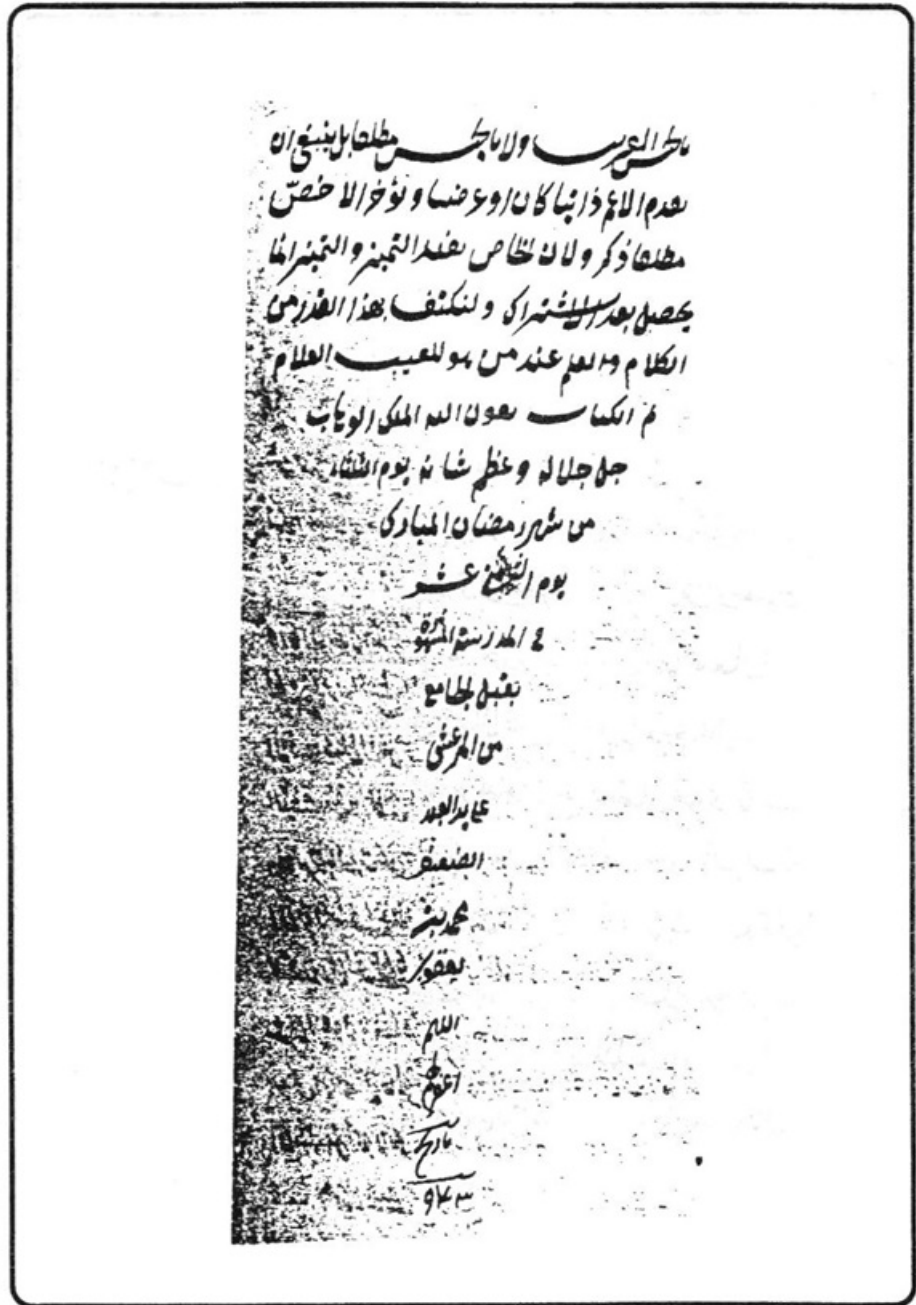 بالجنس القريب ولا بالجنس مطلقا بل ينبغي ان
يقدم الاعم ذاتيا كان او عرضيا ويؤخر الاخص
مطلقا ذكر ولان الخاص يفيد التميز والتميز انما
يحصل بعد الاشتراك ولنكتف بهذا القدر من
الكلام والعلم عند من هو للغيب العلام
تم الكتاب بعون الله الملك الوهاب
جل جلاله وعظم شانه يوم الثلثاء
من شهر رمضان المبارك
يوم عشر
في المدرسة المشهورة
الجامع
من المرعشي
العبد
الضعيف
محمد بن
يعقوب
اللهم
اغفر لهم
تاريخ
٩٤٣